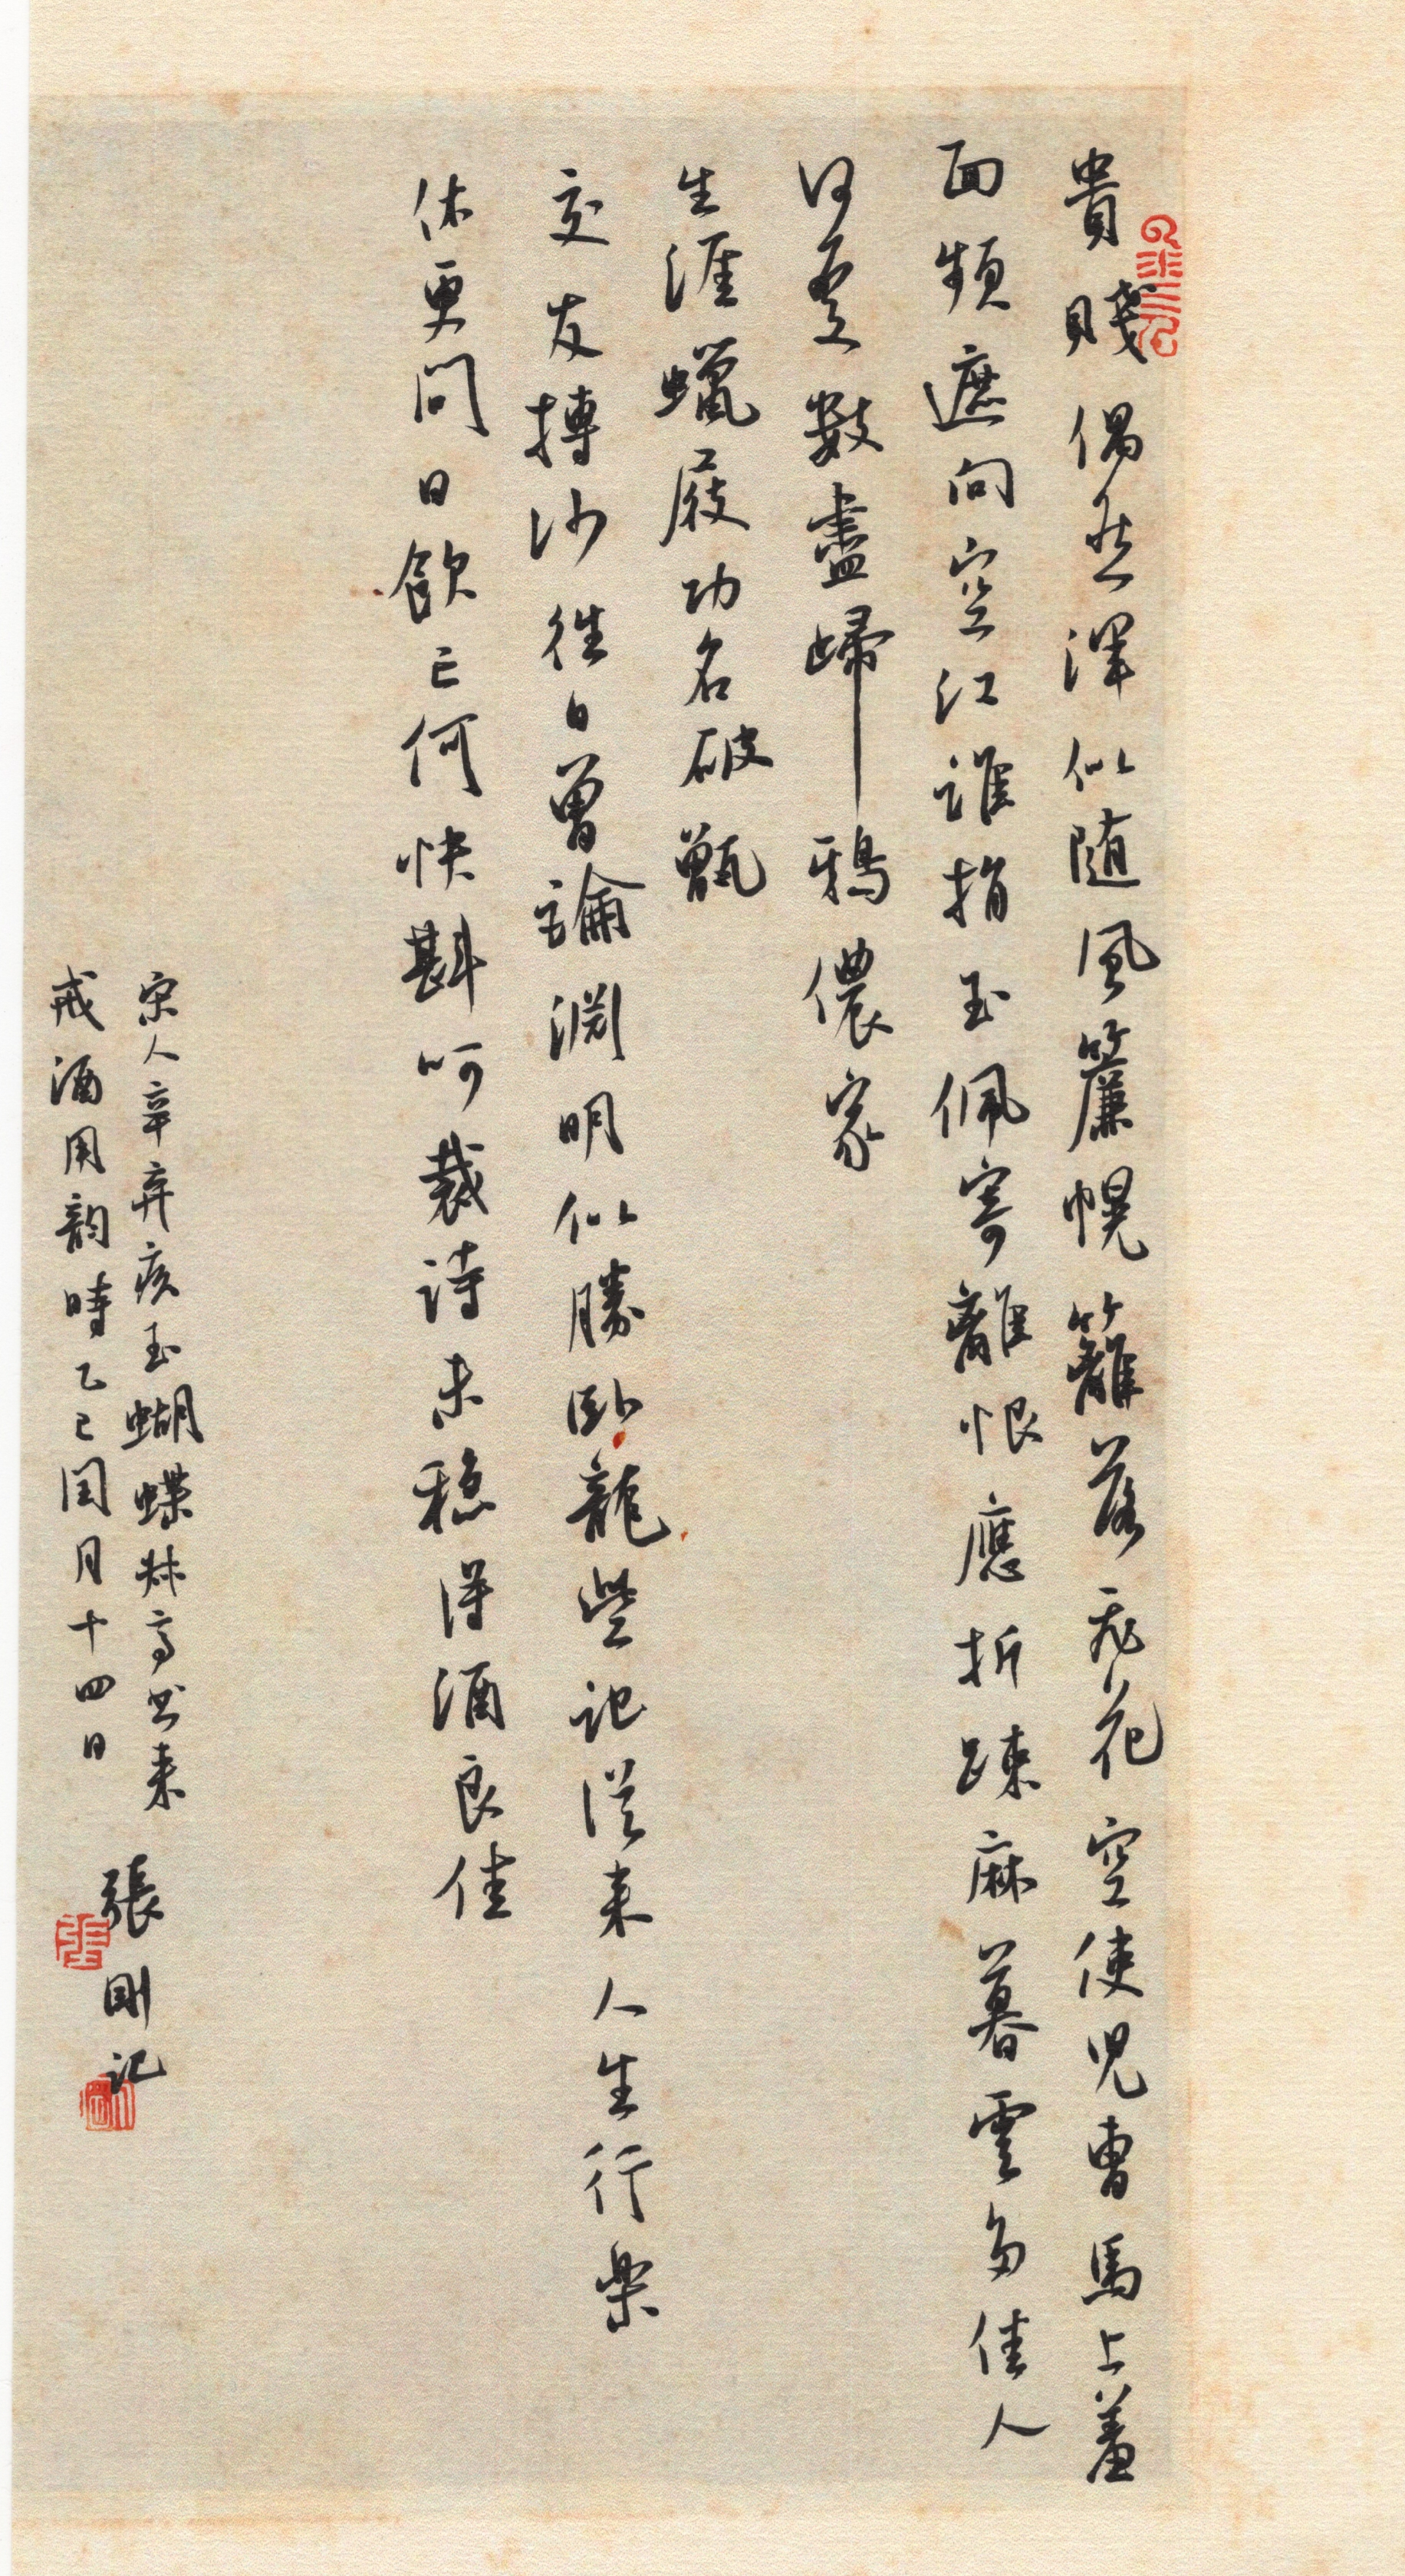 貴賤偶然渾似隨風簾幌籬落飛花空使兒曹馬上羞
面頻遮向空江誰捐玉佩寄離恨應折疎麻暮雲多佳人
何處數盡歸鴉儂家
生涯蠟屐功名破甑
交友摶沙往日曾論淵明似勝臥龍些記從來人生行樂
休更問日飲亡何快斟呵裁詩未穩得酒良佳
宋人辛弃疾玉蝴蝶林高書來
戒酒用韵時乙巳閏月十四日
張剛記